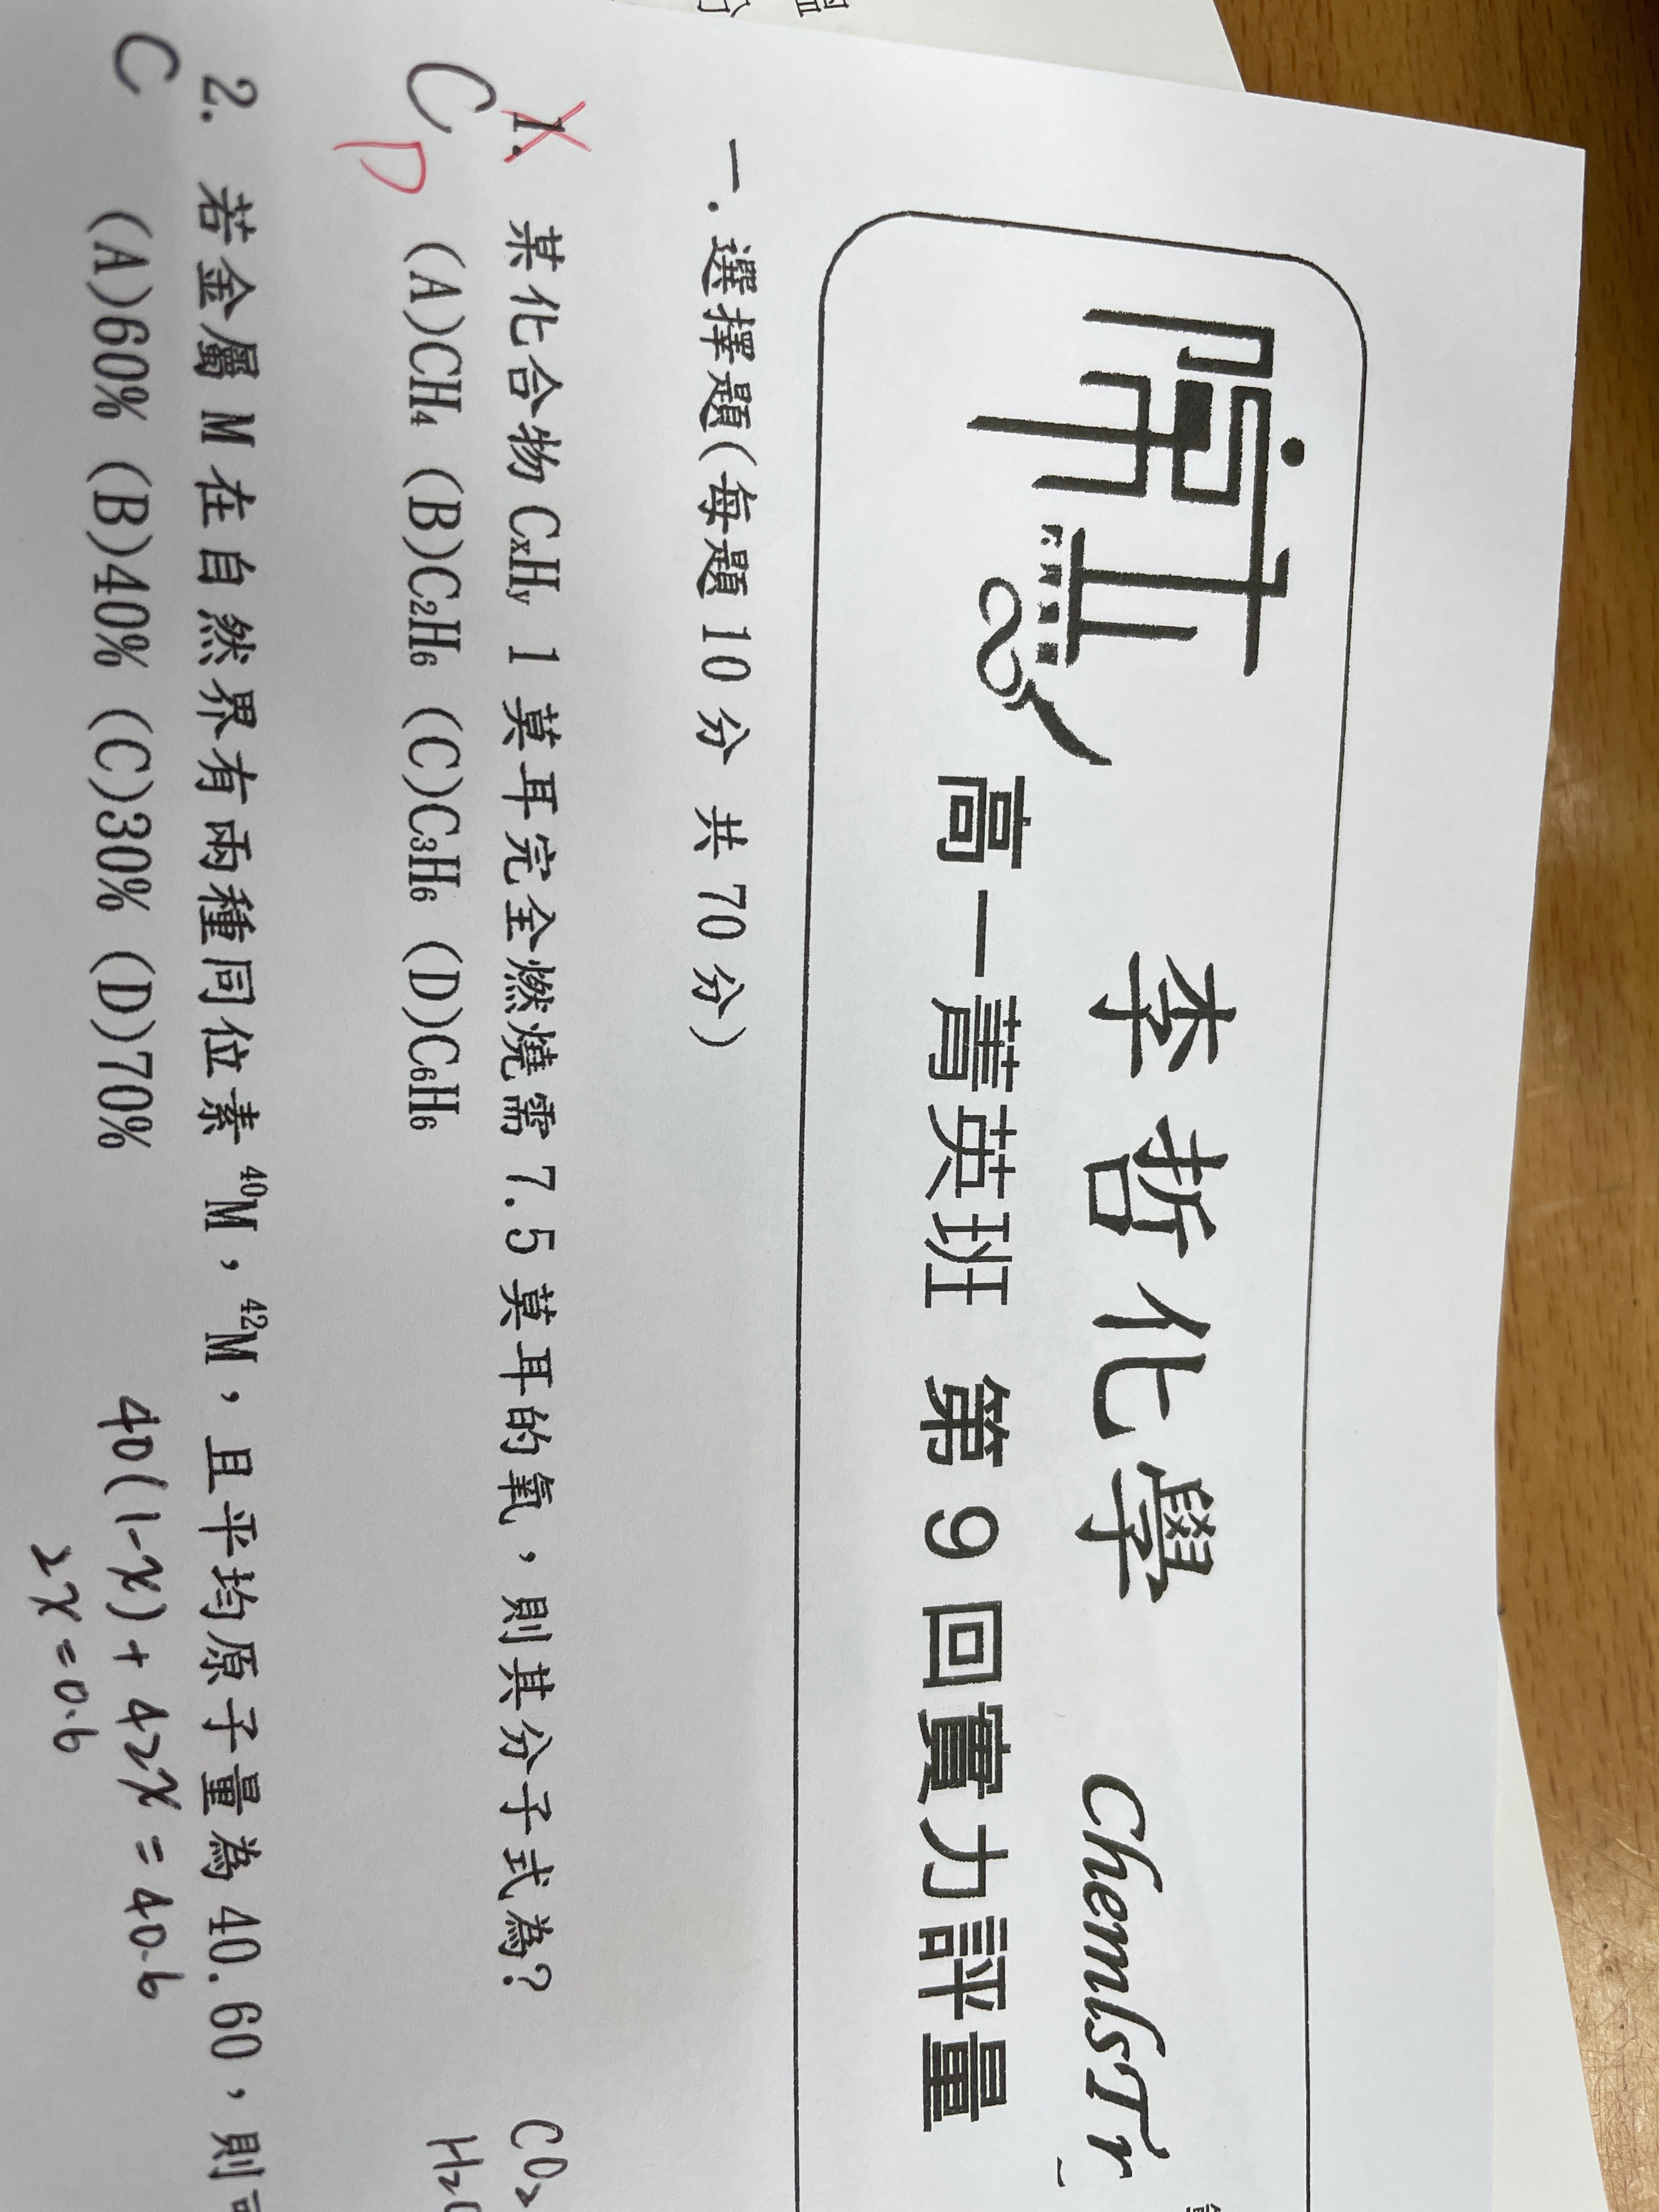 李哲化學 ChemIsTr
高一菁英班 第9回實力評量
一.選擇題(每題10分 共70分)
1. 某化合物CxHy 1莫耳完全燃燒需7.5莫耳的氧，則其分子式為? CO2
C D (A)CH4 (B)C2H6 (C)C3H6 (D)C6H6 H2O
2. 若金屬M在自然界有兩種同位素40M，42M，且平均原子量為40.60，則
C (A)60% (B)40% (C)30% (D)70% 40(1-x)+42x=40.6
2x=0.6